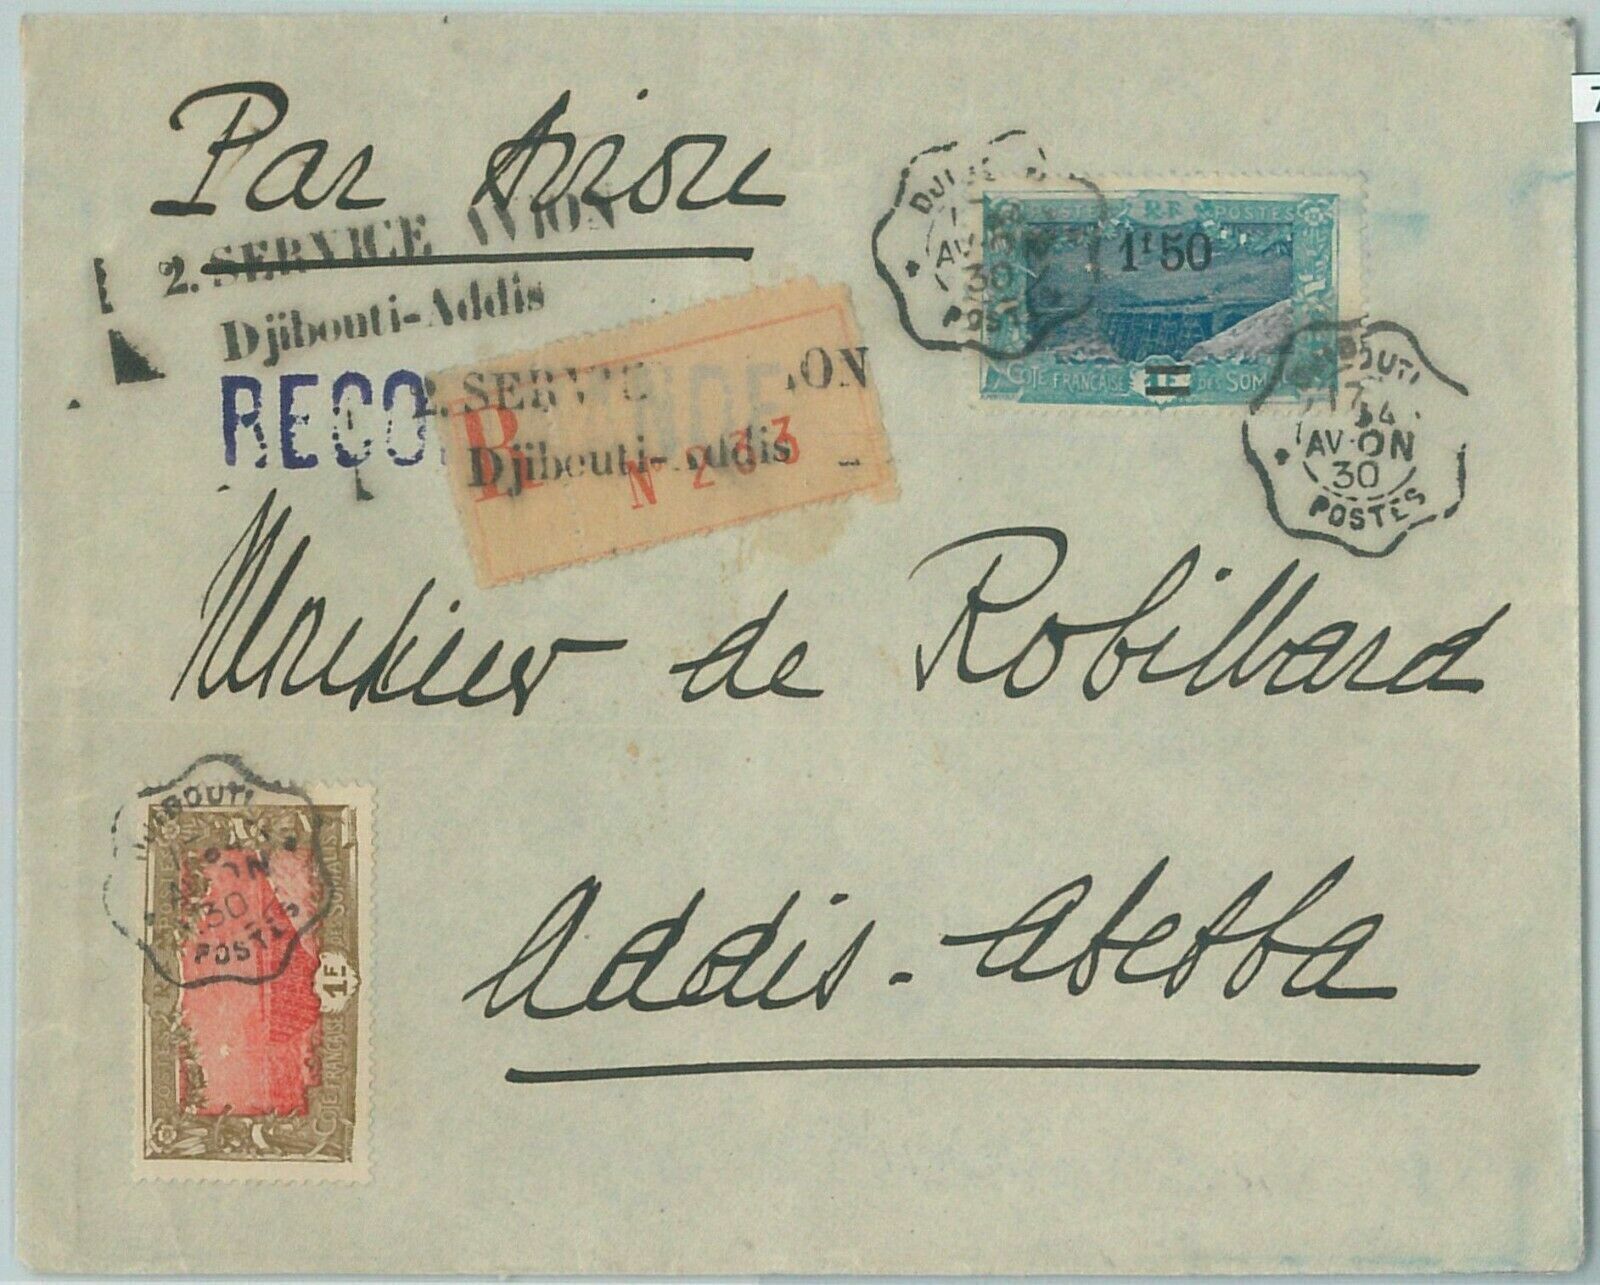 Par Avion
2. SERVICE AVION
Djibouti-Addis
RECO
2. SERVIC ION
Djibouti-Addis
R
N° 233
POSTES R.F. POSTES
1f50
CÔTE FRANÇAISE DES SOM
AV
30
POSTES
DJIBOUTI
17
AVION
30
POSTES
Monsieur de Robillard
DJIBOUTI
30
POSTES
POSTES
1F
CÔTE FRANÇAISE DES SOMALIS
Addis-Abebba
7